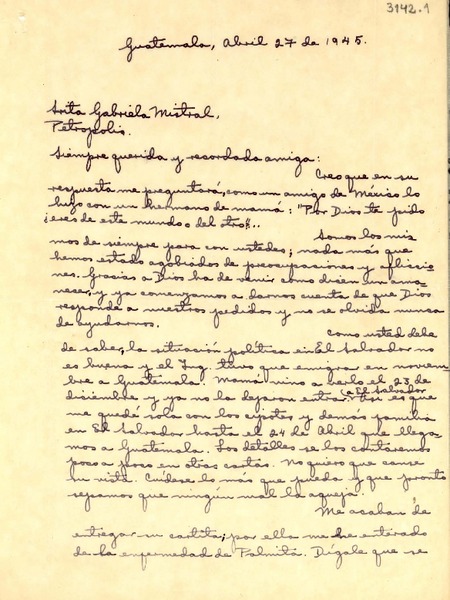 3142.1
Guatemala, Abril 27 de 1945.
Srita Gabriela Mistral,
Petropolis.
Siempre querida y recordada amiga:
Creo que en su
respuesta me preguntará, como un amigo de México lo
hizo con un hermano de mamá: "Por Dios te pido
¿eres de este mundo o del otro"..
Somos los mis
mos de siempre para con ustedes; nada más que
hemos estado agobiados de preocupaciones y afliccio
nes. Gracias a Dios ha de venir como dicen un ama-
necer, y ya comenzamos a darnos cuenta de que Dios
responde a nuestros pedidos y no se olvida nunca
de ayudarnos.
Como usted debe
de saber, la situación política en El Salvador no
es buena y el Ing. tuvo que emigrar en noviem
bre a Guatemala. Mamá vino a verlo el 23 de
diciembre y ya no la dejaron entrar a El Salvador. Así es que
me quedé sola con los cipotes y demás familia
en El Salvador hasta el 24 de Abril que llega-
mos a Guatemala. Los detalles se los contaremos
poco a poco en otras cartas. No quiero que canse
su vista. Cuídese lo más que pueda y que pronto
sepamos que ningún mal la aqueja.
Me acaban de
entregar su cartita; por ella me he enterado
de la enfermedad de Palmita. Dígale que se